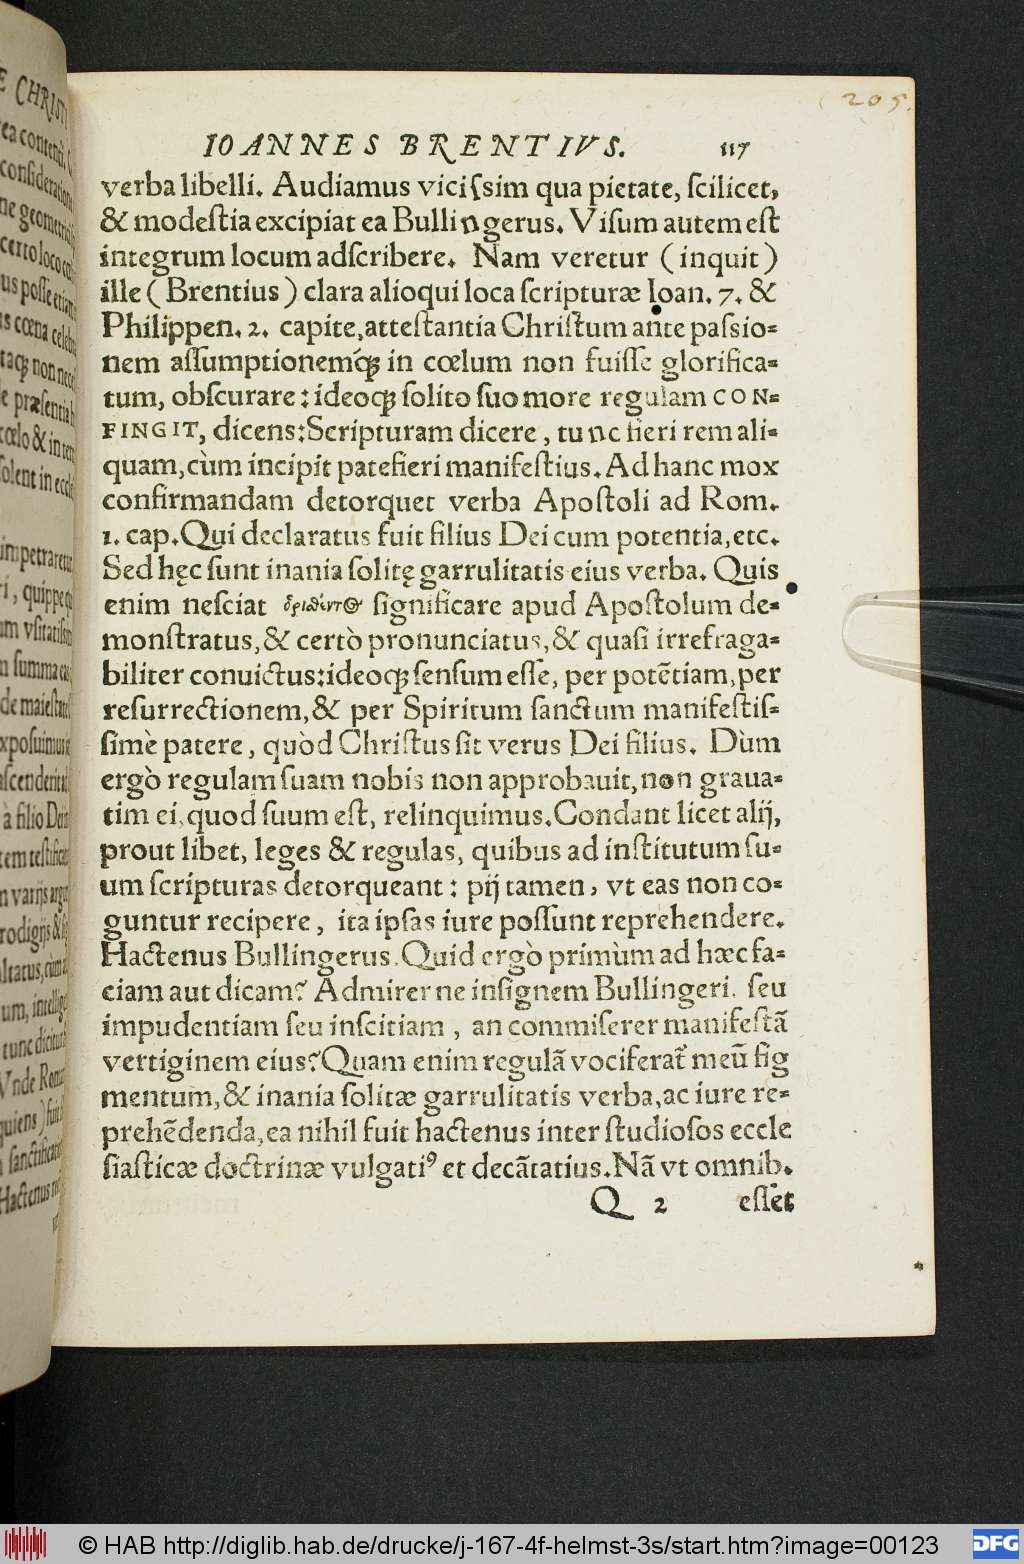 205.
IOANNES BRENTIVS. 117
verba libelli. Audiamus vicissim qua pietate, scilicet,
& modestia excipiat ea Bullingerus. Visum autem est
integrum locum adscribere. Nam veretur (inquit)
ille (Brentius) clara alioqui loca scripturæ Ioan. 7. &
Philippen. 2. capite, attestantia Christum ante passio=
nem assumptionemq́; in cœlum non fuisse glorifica=
tum, obscurare: ideoq; solito suo more regulam CON=
FINGIT, dicens: Scripturam dicere, tunc fieri rem ali=
quam, cùm incipit patefieri manifestius. Ad hanc mox
confirmandam detorquet verba Apostoli ad Rom.
1. cap. Qui declaratus fuit filius Dei cum potentia, etc.
Sed hęc sunt inania solitę garrulitatis eius verba. Quis
enim nesciat ὁριϑέντος significare apud Apostolum de=
monstratus, & certò pronunciatus, & quasi irrefraga=
biliter conuictus: ideoq; sensum esse, per potẽtiam, per
resurrectionem, & per Spiritum sanctum manifestis=
simè patere, quòd Christus sit verus Dei filius. Dùm
ergò regulam suam nobis non approbauit, non graua=
tim ei, quod suum est, relinquimus. Condant licet alij,
prout libet, leges & regulas, quibus ad institutum su=
um scripturas detorqueant: pij tamen, vt eas non co=
guntur recipere, ita ipsas iure possunt reprehendere.
Hactenus Bullingerus. Quid ergò primùm ad hæc fa=
ciam aut dicam? Admirer ne insignem Bullingeri, seu
impudentiam seu inscitiam, an commiserer manifestã
vertiginem eius? Quam enim regulã vociferat᷑ meũ fig
mentum, & inania solitæ garrulitatis verba, ac iure re=
prehẽdenda, ea nihil fuit hactenus inter studiosos eccle
siasticæ doctrinæ vulgatiꝰ et decãtatius. Nã vt omnib.
Q 2 esset
© HAB http://diglib.hab.de/drucke/j-167-4f-helmst-3s/start.htm?image=00123
DFG